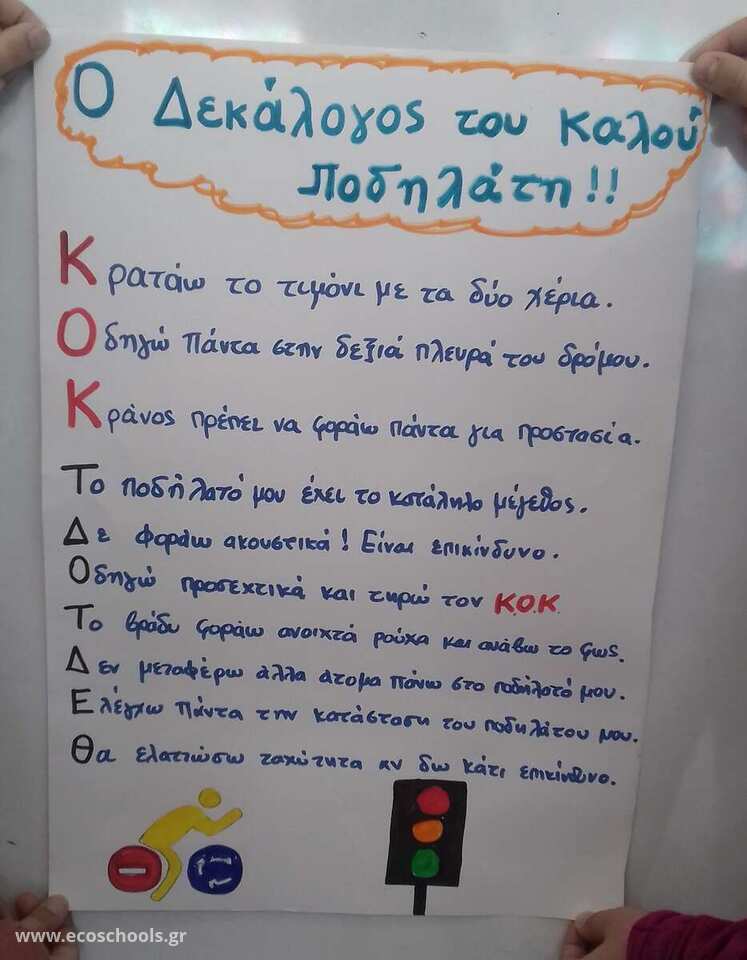 Ο Δεκάλογος του καλού
Ποδηλάτη!!
Κρατάω το τιμόνι με τα δύο χέρια.
Οδηγώ πάντα στην δεξιά πλευρά του δρόμου.
Κράνος πρέπει να φοράω πάντα για προστασία.
Το ποδήλατό μου έχει το κατάληλο μέγεθος.
Δε φοράω ακουστικά! Είναι επικίνδυνο.
Οδηγώ προσεχτικά και τηρώ τον Κ.Ο.Κ.
Το βράδυ φοράω ανοιχτά ρούχα και ανάβω το φως.
Δεν μεταφέρω άλλα άτομα πάνω στο ποδήλατό μου.
Ελέγχω πάντα την κατάσταση του ποδηλάτου μου.
Θα ελατιώσω ταχύτητα αν δω κάτι επικίνδυνο.
www.ecoschools.gr